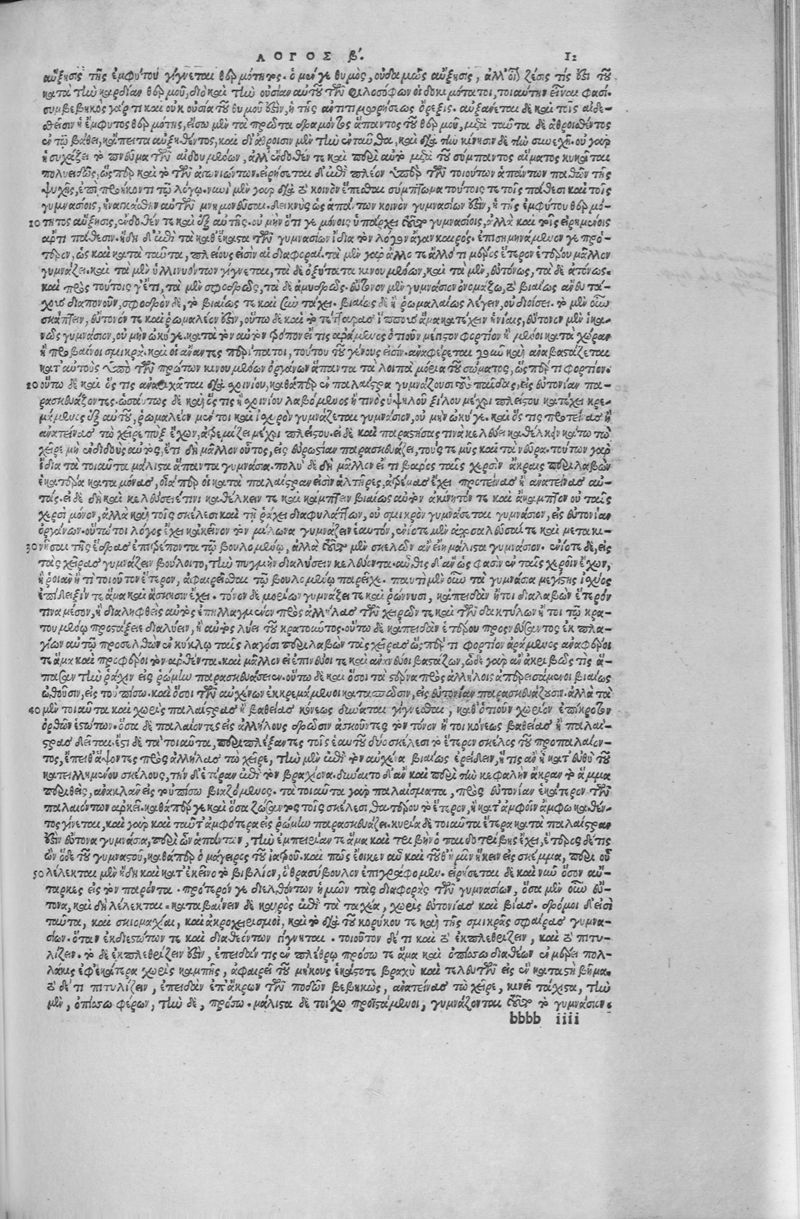 ΛΟΓΟΣ β΄. 12
αὔξησις τῆς ἐμφύτου γίγνεται θερμότητος. ὁ μέν γε θυμὸς, οὐδαμῶς αὔξησις, ἀλλ' οἷον ζέσις τίς ἐστι τοῦ
κατὰ τὴν καρδίαν θερμοῦ, διὸ καὶ τὴν οὐσίαν αὐτοῦ τῶν φιλοσόφων οἱ δοκιμώτατοι, τοιαύτην εἶναί φασι.
συμβεβηκὸς γάρ τι καὶ οὐκ οὐσία τοῦ θυμοῦ ἐστιν, ἡ τῆς ἀντιτιμωρήσεως ὄρεξις. αὐξάνεται δὲ καὶ τοῖς αἰδε-
σθεῖσιν ἡ ἔμφυτος θερμότης, εἴσω μὲν τὰ πρῶτα δραμόντος ἅπαντος τοῦ θερμοῦ, μετὰ ταῦτα δὲ ἀθροισθέντος
ἐν τῷ βάθει, κἄπειτα αὐξηθέντος, καὶ διὰ τὴν ἄθροισιν μὲν τὴν ἐνταῦθα, καὶ διὰ τὴν κίνησιν δὲ τὴν συνεχῆ. οὐ γὰρ
ἡσυχάζει τὸ πνεῦμα τῶν αἰδουμένων, ἀλλ' ἔνδοθέν τε καὶ περὶ αὐτὸ μετὰ τοῦ σύμπαντος αἵματος κυκᾶται
πολυειδῶς, ὥσπερ καὶ τῶν ἀγωνιώντων. εἰρήσεται δ' αὖθις πλέον ὑπὲρ τῶν τοιούτων ἁπάντων παθῶν τῆς
ψυχῆς, ἐπὶ προήκοντι τῷ λόγῳ. νυνὶ μὲν γὰρ διὰ τὸ κοινὸν ἔπεσθαι σύμπτωμα τούτοις τε τοῖς πάθεσι καὶ τοῖς
γυμνασίοις, ἠναγκάσθην αὐτῶν μνημονεῦσαι. δεικνὺς ὡς ἁπάντων κοινὸν γυμνασίων ἐστὶν, ἡ τῆς ἐμφύτου θερμό-
10 τητος αὔξησις, ἔνδοθέν τε καὶ ἐξ αὐτῆς. οὐ μὴν ὅτι γε μόνοις ὑπάρχει τοῦτο γυμνασίοις, ἀλλὰ καὶ τοῖς εἰρημένοις
ἄρτι πάθεσιν. ἤδη δ' αὖθις τὰ καθ' ἕκαστα τῶν γυμνασίων ἴδια τὸν λόγον ἄγειν καιρός. ἐπισημηνάμενόν γε πρό-
τερον, ὡς καὶ κατὰ ταῦτα, πλείους εἰσὶν αἱ διαφοραί. τὰ μὲν γὰρ ἄλλο τε ἄλλό τι μόριον ἕτερον ἑτέρου μᾶλλον
γυμνάζει. καὶ τὰ μὲν ἐλινυόντων γίγνεται, τὰ δὲ ὀξύτατα κινουμένων, καὶ τὰ μὲν, εὐτόνως, τὰ δὲ ἀτόνως.
καὶ πρὸς τούτοις γ' ἔτι, τὰ μὲν σφοδρῶς, τὰ δὲ ἀμυδρῶς. εὔτονον μὲν γυμνάσιον ὀνομάζω, τὸ βιαίως ἄνευ τά-
χους διαπονοῦν, σφοδρὸν δὲ, τὸ βιαίως τε καὶ σὺν τάχει. βιαίως δὲ ἢ ῥωμαλαίως λέγειν, οὐ διοίσει. τὸ μὲν οὖν
σκάπτειν, εὔτονόν τε καὶ ῥωμαλέον ἐστὶν, οὕτω δὲ καὶ τὸ τέτταρας ἵππους ἅμα κατέχειν ἡνίαις, εὔτονον μὲν ἱκα-
νῶς γυμνάσιον, οὐ μὴν ὠκύ γε. κατὰ τὸν αὐτὸν τρόπον εἴ τις ἀράμενος ὁτιοῦν μέγιστον φορτίον ἢ μένοι κατὰ χώραν
ἢ προβαίνοι σμικρά. καὶ οἱ ἀνάντεις περίπατοι, τούτου τοῦ γένους εἰσίν. ἀναφέρεται γὰρ καὶ ἀναβαστάζεται
κατ' αὐτοὺς ὑπὸ τῶν πρώτων κινουμένων ὀργάνων ἅπαντα τὰ λοιπὰ μόρια τοῦ σώματος, ὥσπερ τι φορτίον.
20 οὕτω δὲ καὶ ὅς τις ἀναῤῥιχᾶται διὰ σχοινίου, καθάπερ ἐν παλαίστρᾳ γυμνάζουσι τοὺς παῖδας, εἰς εὐτονίαν πα-
ρασκευάζοντες. ὡσαύτως δὲ καὶ ὅς τις ἢ σχοινίου λαβόμενος ἤ τινος ὑψηλοῦ ξύλου μέχρι πλείστου κατέχει κρε-
μάμενος ἐξ αὐτοῦ, ῥωμαλέον μέν τοι καὶ ἰσχυρὸν γυμνάζεται γυμνάσιον, οὐ μὴν ὠκύ γε. καὶ ὅς τις προτείνας ἢ
ἀνατείνας τὼ χεῖρε πὺξ ἔχων, ἀτρεμίζει μέχρι πλείστου. εἰ δὲ καὶ παραστήσας τινὰ κελεύοι καθέλκειν κάτω τὼ
χεῖρε μὴ ἐνδιδοὺς αὐτὸς, ἔτι δὴ μᾶλλον οὗτος, εἰς εὐρωστίαν παρασκευάζει, τούς τε μῦς καὶ τὰ νεῦρα. τούτων γὰρ
ἴδια τὰ τοιαῦτα μάλιστα ἅπαντα γυμνάσια. πολὺ δὲ δὴ μᾶλλον εἴ τι βάρος ταῖς χερσὶν ἄκραις περιλαβὼν
ἑκατέρᾳ κατὰ μόνας, οἷάπερ οἱ κατὰ παλαίστραν εἰσὶν ἁλτῆρες, ἀτρέμας ἔχει προτείνας ἢ ἀνατείνας αὐ-
τάς. εἰ δὲ δὴ καὶ κελεύσειέ τινι καθέλκειν τε καὶ κάμπτειν βιαίως αὐτὸν ἀκίνητόν τε καὶ ἄκαμπτον οὐ ταῖς
χερσὶ μόνον, ἀλλὰ καὶ τοῖς σκέλεσι καὶ τῇ ῥάχει διαφυλάττων, οὐ σμικρὸν γυμνάσεται γυμνάσιον, εἰς εὐτονίαν
ὀργάνων. οὕτω τοι λόγος ἔχει κἀκεῖνον τὸν μίλωνα γυμνάζειν ἑαυτόν, ἐνίοτε μὲν ἀποσαλεῦσαί τε καὶ μετακι-
30 νῆσαι τῆς ἕδρας ἐπιτρέποντα τῷ βουλομένῳ, ἀλλὰ τοῦτο μὲν σκελῶν ἂν εἴη μάλιστα γυμνάσιον. ἐνίοτε δὲ, εἰς
τὰς χεῖρας γυμνάζειν βούλοιτο, τὴν πυγμὴν διαλύειν κελεύοντα. αὖθις δ' ἂν ὥς φασιν ἐν ταῖς χερσὶν ἔχων,
ἢ ῥοιὰν ἤ τι τοιοῦτον ἕτερον, ἀφαιρεῖσθαι τῷ βουλομένῳ παρεῖχε. ταυτὶ μὲν οὖν τὰ γυμνάσια μεγίστης ἰσχύος
ἐπίδειξίν τε ἅμα καὶ ἄσκησιν ἔχει. τόνον δὲ μορίων γυμνάζει τε καὶ ῥώννυσι, κἀπειδὰν ἤτοι διαλαβὼν ἕτερόν
τινα μέσον, ἢ διαληφθεὶς αὐτὸς ἐπηλλαγμένων πρὸς ἀλλήλας τῶν χειρῶν τε καὶ τῶν δακτύλων ἤ τοι τῷ κρα-
τουμένῳ προστάξει διαλύειν, ἢ αὐτὸς λύει τοῦ κρατοῦντος. οὕτω δὲ κἀπειδὰν ἑτέρου προσνεύσαντος ἐκ πλα-
γίων αὐτῷ προσελθὼν ἐν κύκλῳ ταῖς λαγόσι περιλαβὼν τὰς χεῖρας ὥσπερ τι φορτίον ἀράμενος ἀναφέροι
τε ἅμα καὶ προσφέροι τὸν ἀρθέντα. καὶ μᾶλλον εἰ ἐπινεύοι τε καὶ ἀνανεύοι βαστάζων, ὧδε γὰρ ἂν ἀκριβῶς τις ἅ-
πασαν τὴν ῥάχιν εἰς ῥώμην παρασκευάσειεν. οὕτω δὲ καὶ ὅσοι τὰ στέρνα πρὸς ἀλλήλοις ἀπερεισάμενοι βιαίως
ὠθοῦσιν, εἰς τοὐπίσω. καὶ ὅσοι τῶν αὐχένων ἐκκρεμάμενοι κατασπῶσιν, εἰς εὐτονίαν παρασκευάζουσιν. ἀλλὰ τὰ
40 μὲν τοιαῦτα καὶ χωρὶς παλαίστρας ἢ βαθείας κόνεως δύναται γίγνεσθαι, καθ' ὁτιοῦν χωρίον ἐπίκροτον
ὀρθῶν ἑστώτων. ὅσα δὲ παλαίοντες εἰς ἀλλήλους δρῶσιν ἀσκοῦντες τὸν τόνον ἤ τοι κόνεως βαθείας ἢ παλαί-
στρας δεῖται. ἔστι δὲ τὰ τοιαῦτα, περιπλέξαντες τοῖς ἑαυτοῦ δύο σκέλεσι τὸ ἕτερον σκέλος τοῦ προσπαλαίον-
τος, ἔπειθ' ἅψαντες πρὸς ἀλλήλας τὼ χεῖρε, τὴν μὲν ἐπὶ τὸν αὐχένα βιαίως ἐρείδειν, ἥ τις ἂν ᾖ κατ' εὐθὺ τοῦ
κατειλημμένου σκέλους, τὴν δ' ἑτέραν ἐπὶ τὸν βραχίονα. δύναιτο δ' ἂν καὶ περὶ τὴν κεφαλὴν ἄκραν τὸ ἅμμα
περιθεὶς, ἀνακλᾶν εἰς τοὐπίσω βιαζόμενος. τὰ τοιαῦτα γὰρ παλαίσματα, πρὸς εὐτονίαν ἑκάτερον τῶν
παλαιόντων ἀσκεῖ. καθάπερ γε καὶ ὅσα ζώσαντος τοῖς σκέλεσι θατέρου τὸ ἕτερον, ἢ κατ' ἀμφοῖν ἄμφω καθέν-
τος γίνεται, καὶ γὰρ καὶ ταῦτ' ἀμφότερα εἰς ῥώμην παρασκευάζει. μυρία δὲ τοιαῦτα ἕτερα κατὰ παλαίστραν
ἐστὶν εὔτονα γυμνάσια, περὶ ὧν ἁπάντων, τὴν ἐμπειρίαν τε ἅμα καὶ τριβὴν ὁ παιδοτρίβης ἔχει, ἕτερος δέ τις
ὢν ὅδε τοῦ γυμναστοῦ, καθάπερ ὁ μάγειρος τοῦ ἰατροῦ. καί πως ἔοικεν αὖ καὶ τοῦθ' ἡμῖν ἥκειν εἰς σκέμμα, περὶ οὗ
50 λέλεκται μὲν ἤδη καὶ κατ' ἐκεῖνο τὸ βιβλίον, ὃ θρασύβουλον ἐπιγράφομεν. εἰρήσεται δὲ καὶ νῦν ὅσον αὔ-
ταρκες εἰς τὸν παρόντα. πρότερόν γε διελθόντων ἡμῶν τὰς διαφορὰς τῶν γυμνασίων, ὅσα μὲν οὖν εὔ-
τονα, καὶ δὴ λέλεκται. καταβαίνειν δὲ καιρὸς ἐπὶ τὰ ταχέα, χωρὶς εὐτονίας καὶ βίας. δρόμοι δ' εἰσὶ
ταῦτα, καὶ σκιομαχίαι, καὶ ἀκροχειρισμοί, καὶ τὸ διὰ τοῦ κωρύκου τε καὶ τῆς σμικρᾶς σφαίρας γυμνά-
σιον. ὅταν ἐκ διεστώτων τε καὶ διαθεόντων γίγνηται. τοιοῦτον δέ τι καὶ τὸ ἐκπλεθρίζειν, καὶ τὸ πιτυ-
λίζειν. τὸ δὲ ἐκπλεθρίζειν ἐστὶν, ἐπειδάν τις ἐν πλέθρῳ πρόσω τε ἅμα καὶ ὀπίσω διαθέων ἐν μέρει πολ-
λάκις ἐφ' ἑκάτερα χωρὶς καμπῆς, ἀφαιρεῖ τοῦ μήκους ἑκάστοτε βραχὺ καὶ τελευτῶν εἰς ἓν καταστῇ βῆμα.
τὸ δέ τι πιτυλίζειν, ἐπειδὰν ἐπ' ἄκρων τῶν ποδῶν βεβηκὼς, ἀνατείνας τὼ χεῖρε, κινεῖ τάχιστα, τὴν
μὲν, ὀπίσω φέρων, τὴν δὲ, πρόσω. μάλιστα δὲ τοίχῳ προϊστάμενοι, γυμνάζονται τοῦτο τὸ γυμνάσιον.
bbbb iiii